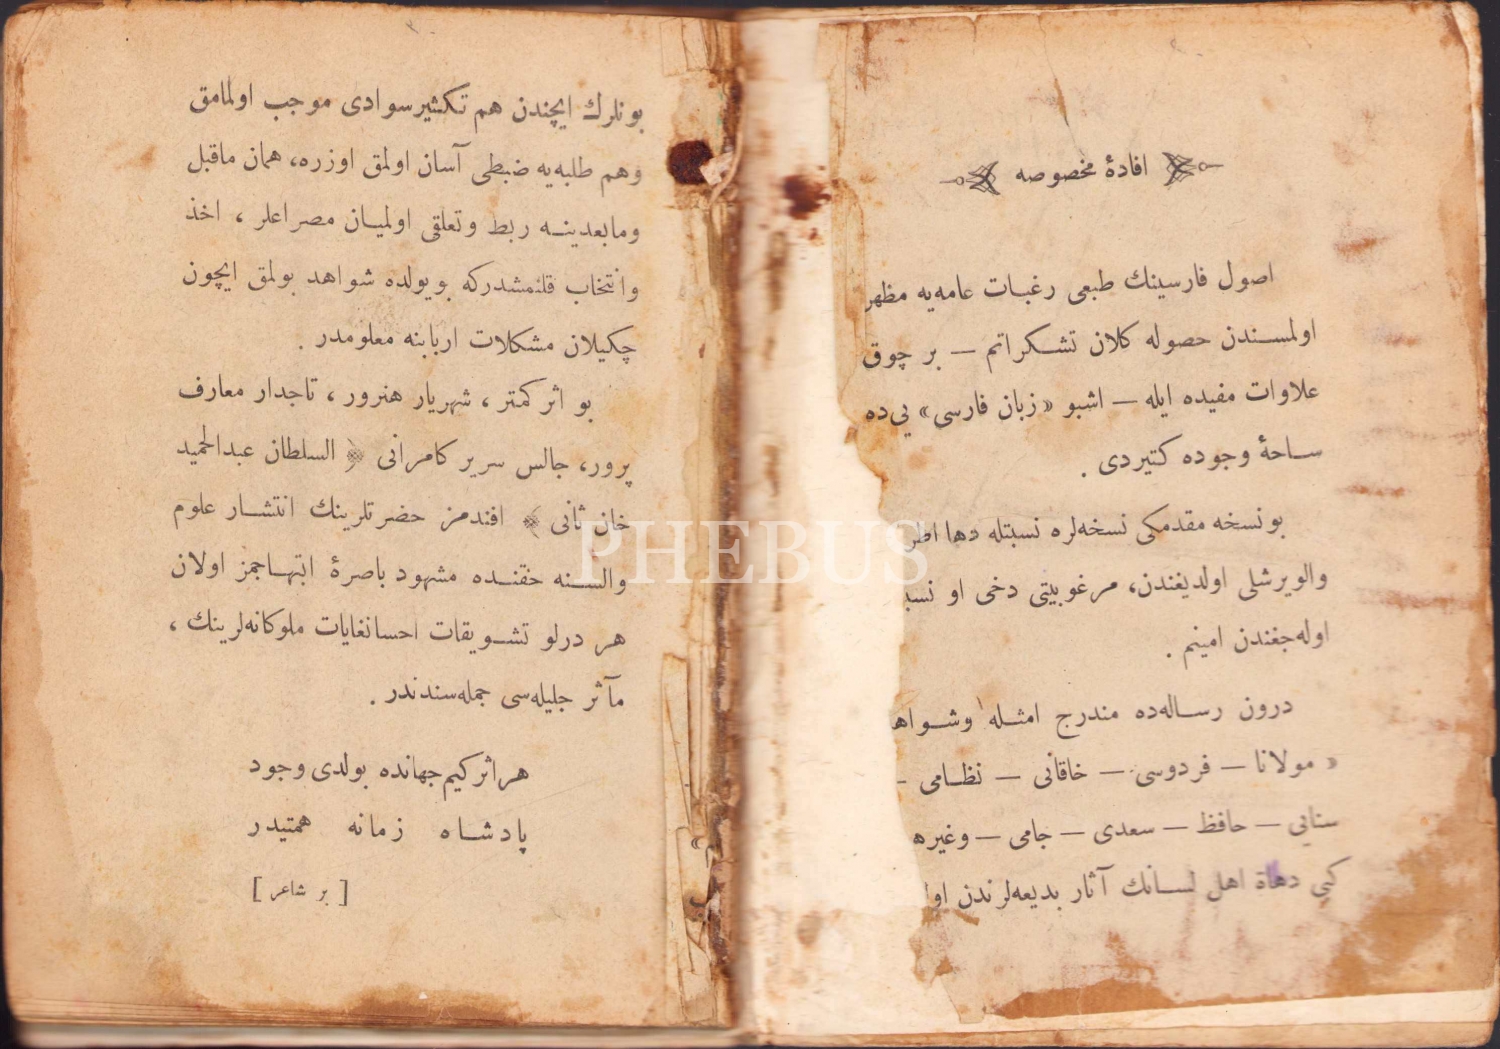 افادهٔ مخصوصه
اصول فارسینك طبعی رغبات عامه‌یه مظهر
اولمسندن حصوله كلان تشكراتم — بر چوق
علاوات مفیده ایله — اشبو «زبان فارسی» یی‌ده
ساحهٔ وجوده كتیردی .
بو نسخه مقدمكی نسخه‌لره نسبتله دها
والویرشلی اولدیغندن، مرغوبیتی دخی او
اوله‌جغندن امینم .
درون رساله‌ده مندرج امثله
« مولانا — فردوسی — خاقانی — نظامی -
سنایی — حافظ — سعدی — جامی — وغیره
كبی دهاة اهل لسانك آثار بدیعه‌لرندن
بونلرك ایچندن هم تكثیر سوادی موجب اولمامق
وهم طلبه‌یه ضبطی آسان اولمق اوزره، همان ماقبل
ومابعدینه ربط وتعلقی اولمیان مصراعلر ، اخذ
وانتخاب قلنمشدركه بویولده شواهد بولمق ایچون
چكیلان مشكلات اربابنه معلومدر .
بو اثر كمتر ، شهریار هنرور ، تاجدار معارف
پرور، جالس سریر كامرانی ﴿ السلطان عبدالحمید
خان ثانی ﴾ افندمز حضرتلرینك انتشار علوم
والسنه حقنده مشهود باصرهٔ ابتهاجمز اولان
هر درلو تشویقات احسانغایات ملوكانه‌لرینك ،
مآثر جلیله‌سی جمله‌سندندر .
هر اثر كیم جهانده بولدی وجود
پادشاه زمانه همتیدر
[ بر شاعر ]
PHEBUS